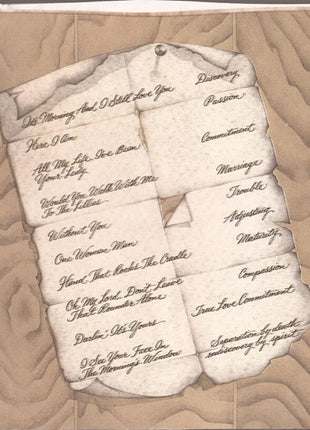 It's Morning, And I Still Love You Discovery
Passion
Here I Am
Commitment
All My Life I've Been
Your Lady
Would You Walk With Me Marriage
To The Lillies
Trouble
Without You Adjusting
One Woman Man Maturity
Hand That Rocks The Cradle
Compassion
Oh My Lord, Don't Leave
That Rounder Alone
True Love Commitment
Darlin' It's Yours
Separation by death
I See Your Face In rediscovery by spirit
The Morning's Window